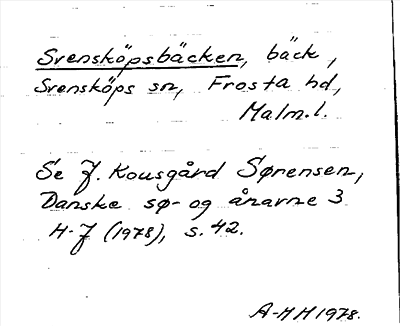 Svensköpsbäcken, bäck,
Svensköps sn, Frosta hd,
Malm.l.
Se J. Kousgård Sørensen,
Danske sø- og ånavne 3
H-J (1978), s. 42.
A-HH 1978.